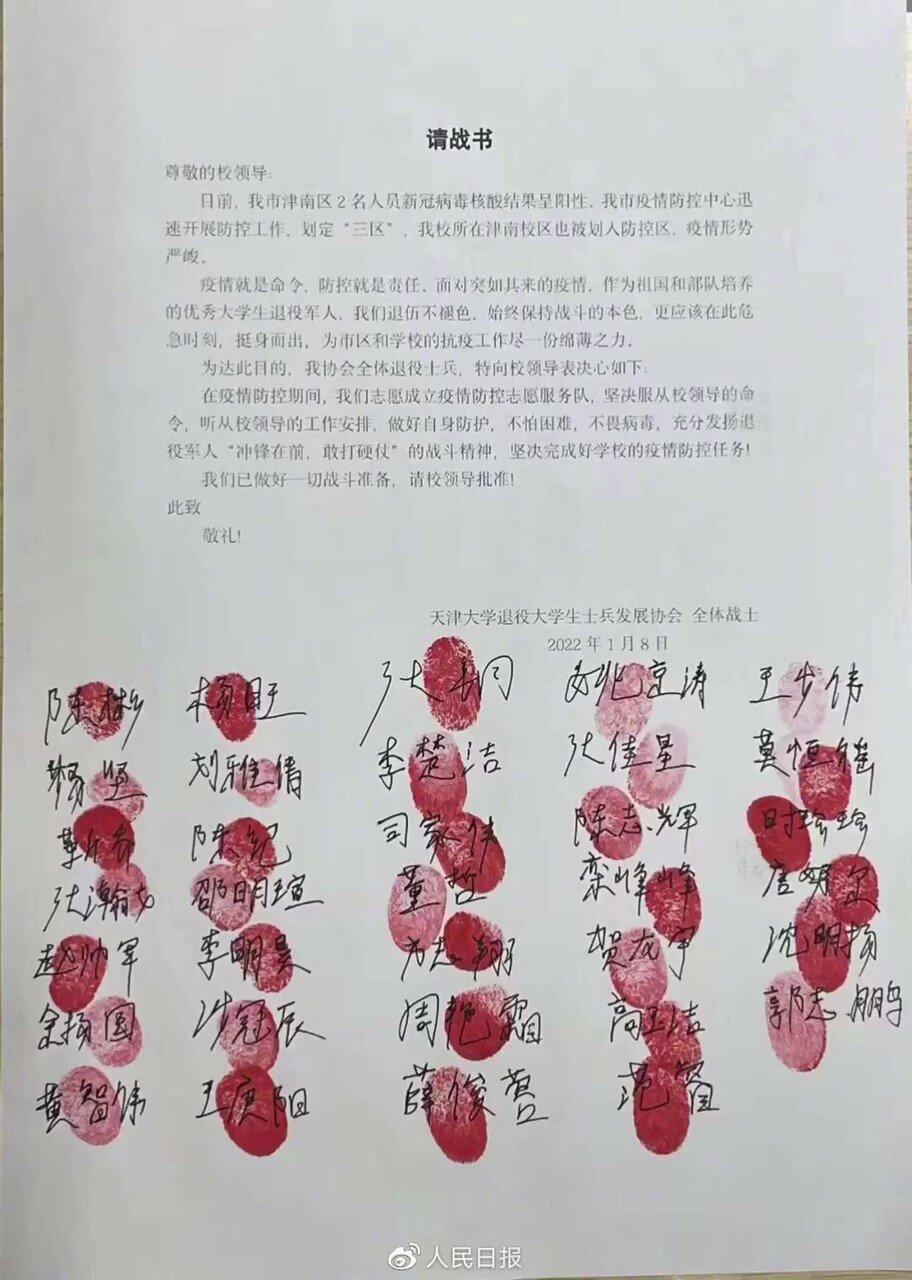 请战书
尊敬的校领导:
目前,我市津南区2名人员新冠病毒核酸结果呈阳性,我市疫情防控中心迅
速开展防控工作,划定“三区”,我校所在津南校区也被划入防控区,疫情形势
严峻。
疫情就是命令,防控就是责任。面对突如其来的疫情,作为祖国和部队培养
的优秀大学生退役军人,我们退伍不褪色,始终保持战斗的本色,更应该在此危
急时刻,挺身而出,为市区和学校的抗疫工作尽一份绵薄之力。
为达此目的,我协会全体退役士兵,特向校领导表决心如下:
在疫情防控期间,我们志愿成立疫情防控志愿服务队,坚决服从校领导的命
令,听从校领导的工作安排,做好自身防护,不怕困难,不畏病毒,充分发扬退
役军人“冲锋在前,敢打硬仗”的战斗精神,坚决完成好学校的疫情防控任务!
我们已做好一切战斗准备,请校领导批准!
此致
敬礼!
天津大学退役大学生士兵发展协会 全体战士
2022年1月8日
陈彬 杨旺 姚兆京涛 王步伟
杨坚 刘雅倩 李楚洁 张佳星 莫恒瑶
靳乔 陈凯 司家伟 陈志辉 时珍珍
张瀚文 邵明瑄 董哲 栾峰峰
赵帅军 李明昊 方志翔 贺龙宇 沈明扬
余扬国 冼冠辰 周艳霜 高玉洁 郭志鹏
黄智伟 王庚阳 薛俊营 范富
人民日报